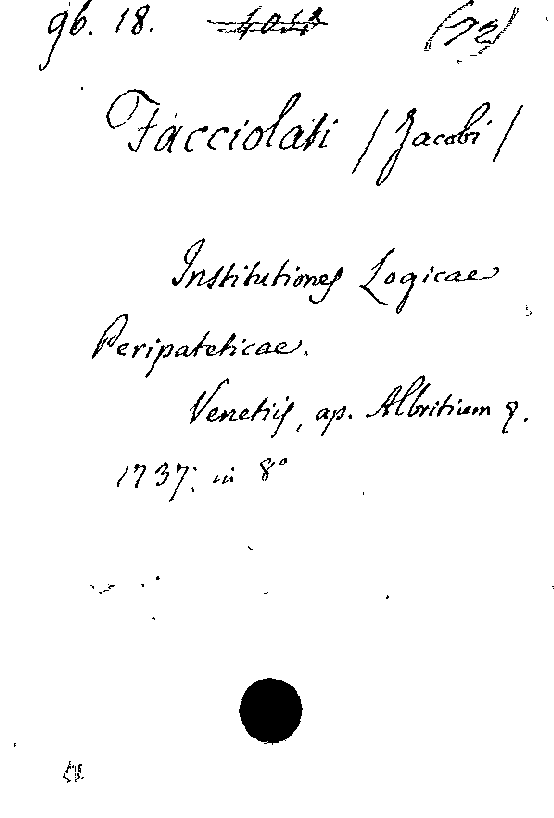 gb. 18. (72)
Facciolati / Jacobi /
Institutiones Logicae
Peripateticae.
Venetiis, ap. Albritium q.
1737. in 8°